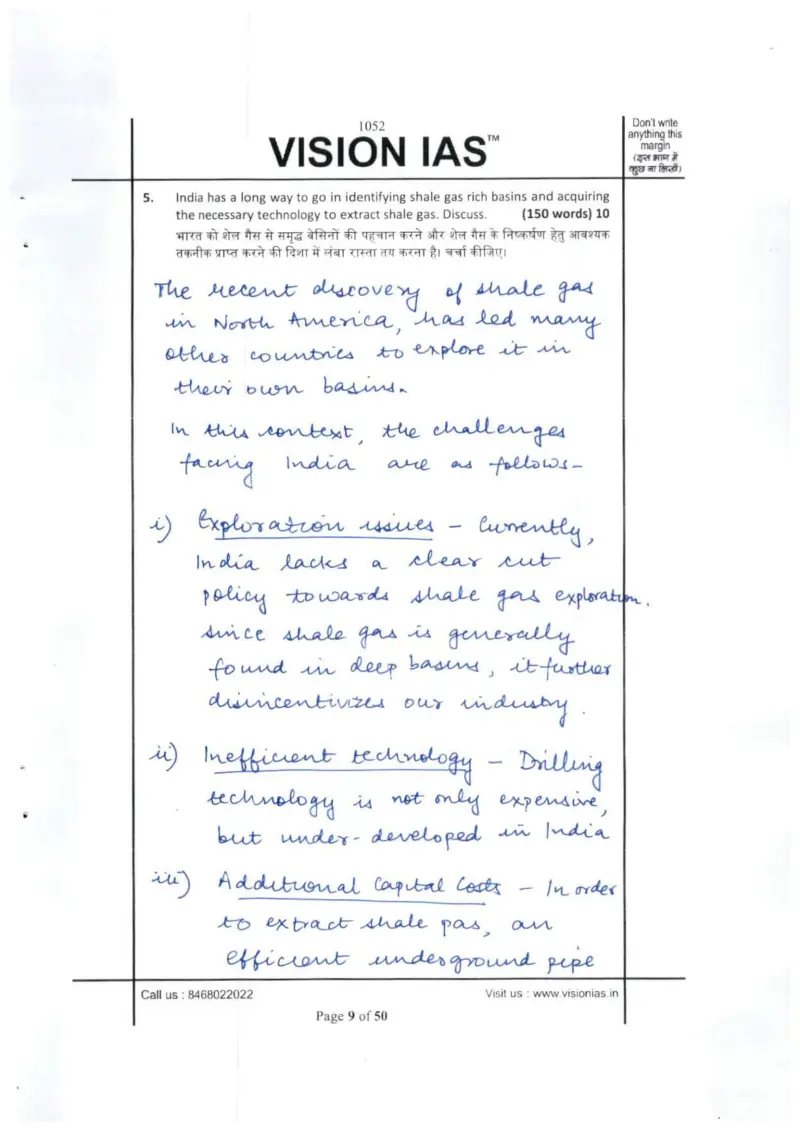 1052
VISION IAS™
Don't write
anything this
margin
(इस भाग में
कुछ ना लिखें)
5. India has a long way to go in identifying shale gas rich basins and acquiring
the necessary technology to extract shale gas. Discuss. (150 words) 10
भारत को शेल गैस से समृद्ध बेसिनों की पहचान करने और शेल गैस के निष्कर्षण हेतु आवश्यक
तकनीक प्राप्त करने की दिशा में लंबा रास्ता तय करना है। चर्चा कीजिए।
The recent discovery of shale gas
in North America, has led many
other countries to explore it in
their own basins.
In this context, the challenges
facing India are as follows-
i) Exploration issues - Currently,
India lacks a clear cut
policy towards shale gas exploration.
since shale gas is generally
found in deep basins, it further
disincentivizes our industry.
ii) Inefficient technology - Drilling
technology is not only expensive,
but under-developed in India
iii) Additional Capital Costs - In order
to extract shale pas, an
efficient underground pipe
Call us : 8468022022
Visit us : www.visionias.in
Page 9 of 50